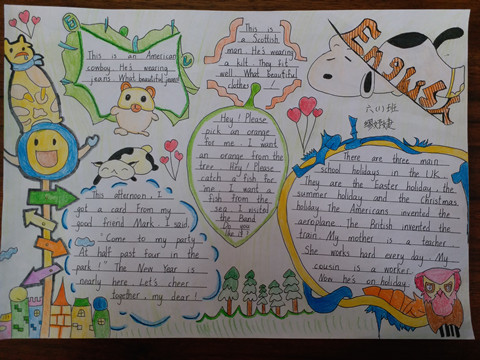 This is an American
cowboy. He's wearing
jeans. What beautiful jeans!
This is
a Scottish
man. He's wearing
a kilt. They fit
well. What beautiful
clothes!
六(1)班
Hey! Please
pick an orange
for me. I want
an orange from the
tree. Hey! Please
catch a fish for
me. I want a
fish from the
sea. I visited
the Bund.
Do you
like it?
This afternoon, I
got a card from my
good friend Mark. I said,
"Come to my party
At half past four in the
park!" The New Year is
nearly here. Let's cheer
together, my dear!
There are three main
school holidays in the UK.
They are the Easter holiday, the
summer holiday and the Christmas
holiday. The Americans invented the
aeroplane. The British invented the
train. My mother is a teacher.
She works hard every day. My
cousin is a worker.
Now he's on holiday.